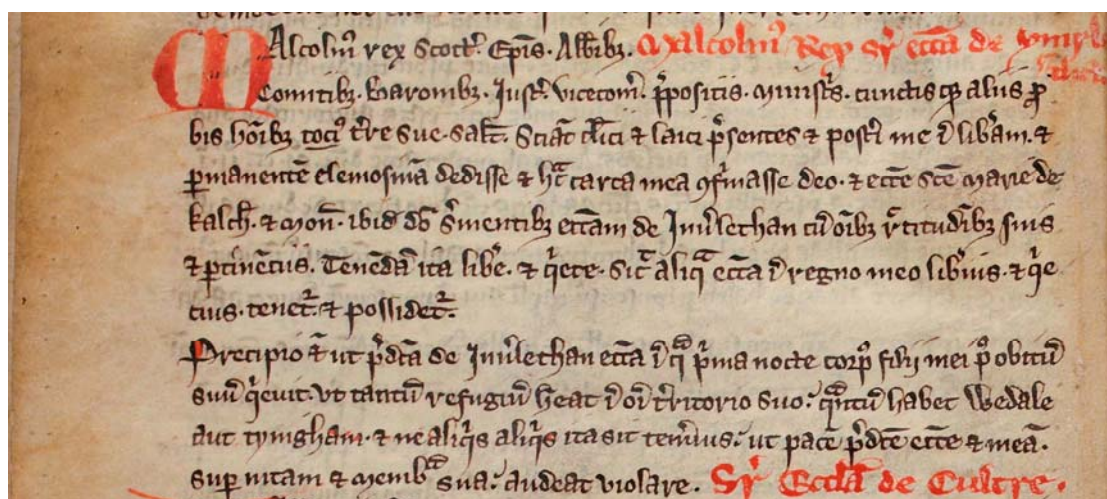 Malcolm' rex Scott'. Ep̄is. Abb̄ibꝫ. Malcolm' Rex sr̄ ecc̄a de
Comitibꝫ. Baronibꝫ. Just'. vicecom̄. p̄positis. Ministr̄s. cunctis qꝫ aliis ꝓ
bis hōibꝫ toci' t̄re sue. salt̄. Sciāt cl̄ici ⁊ laici p̄sentes ⁊ post'i me ī lib̄am. ⁊
ꝑmanentē elemosinā dedisse ⁊ hac carta mea ꝯfirmasse deo. ⁊ ecc̄e sc̄e Marie de
kalch̄. ⁊ Mon̄. ibid̄ dō s̄uientibꝫ ecc̄am de Inuͥlethan cū oībꝫ rͨtitudībꝫ suis
⁊ ꝑtinēciis. Tenēdā ita lib̄e. ⁊ qͥete. sicͭ aliqͣ ecc̄a ī regno meo lib̄ius. ⁊ qͥe
cius. tenet'. ⁊ possidet'.
Precipio ēt ut p̄dc̄a de Inuͥlethan ecc̄a ī qͣ pͥma nocte corp' filij mei pͦ obitū
suū qͥeuit. vt tantū refugiū hēat ī oī t̄ritorio suo. qͣntū habet Wedale
aut tyningham. ⁊ ne aliqͥs aliqͥs ita sit tem̄ius. ut pacē p̄dc̄e ecc̄e ⁊ meā.
suꝑ uitam ⁊ membͣ sua. audeat violare. Sr̄ Eccl̄a de Cultre.